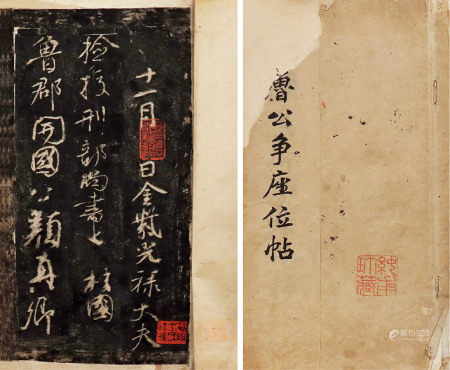 十一月 日金紫光禄大夫
检校刑部尚书上柱國
魯郡開國公顏真卿
魯公争座位帖